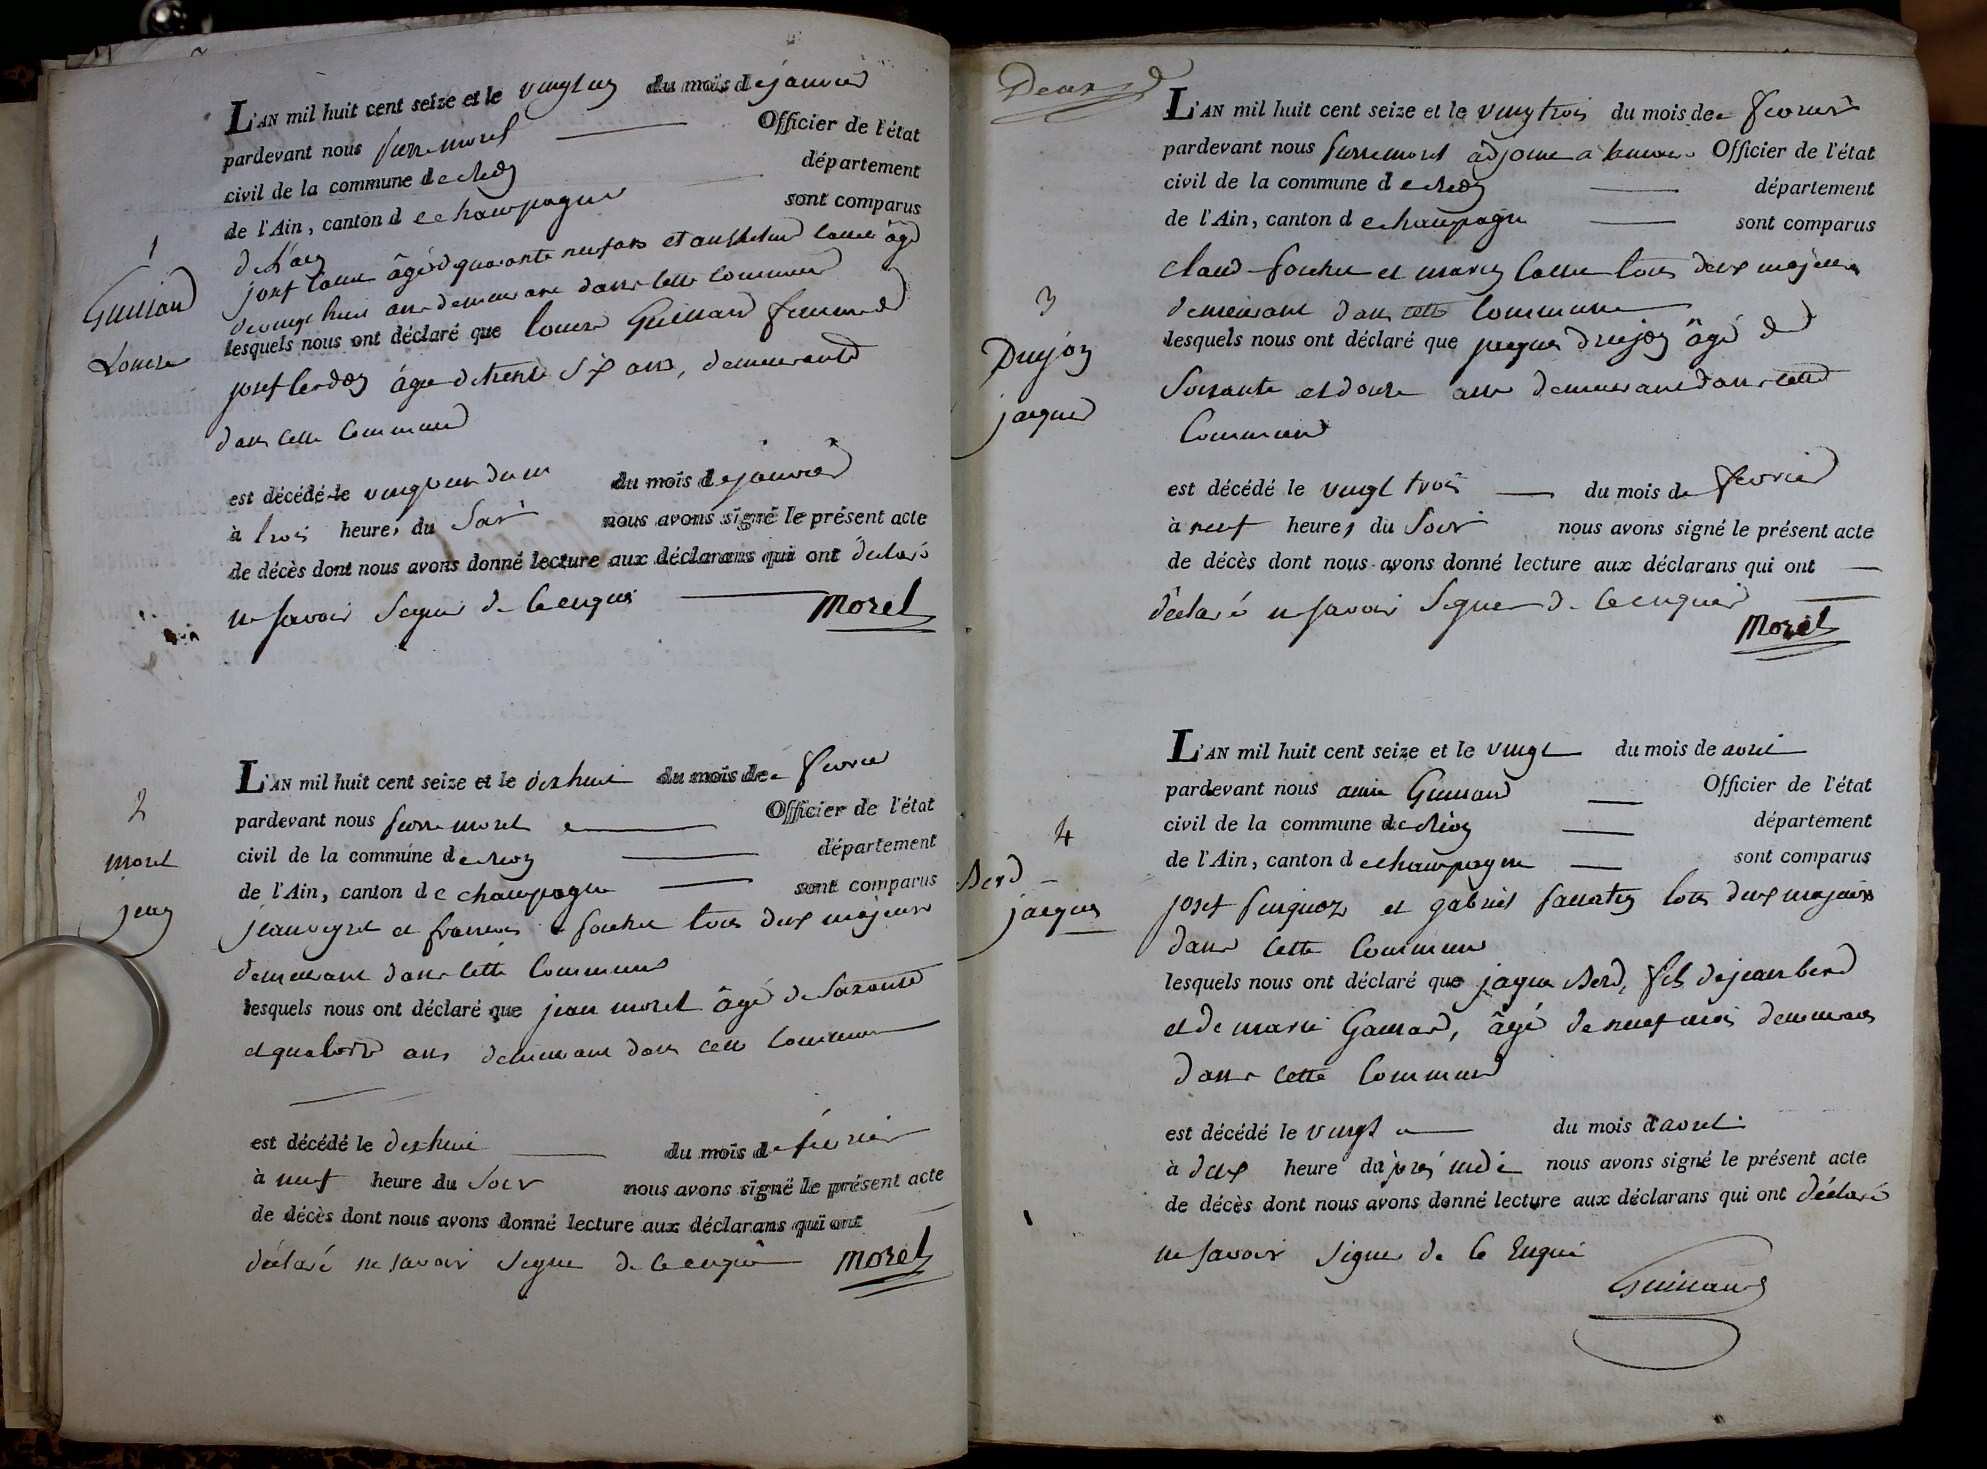 L'AN mil huit cent seize et le vingt un du mois de janvier
pardevant nous pierre morel Officier de l'état
civil de la commune de département
de l'Ain, canton de champagne sont comparus
josef âgé de quarante neuf ans et âgé
de vingt huit ans demeurant dans cette commune
lesquels nous ont déclaré que louise Guilland femme de
josef âgée de trente six ans, demeurante
dans cette commune
est décédé le vingt un du m du mois de janvier
à trois heures du soir nous avons signé le présent acte
de décès dont nous avons donné lecture aux déclarans qui ont déclaré
ne savoir signer de ce enquis
Morel
1
Guilland
Louise
L'AN mil huit cent seize et le dixhuit du mois de fevrier
pardevant nous pierre morel Officier de l'état
civil de la commune de département
de l'Ain, canton de champagne sont comparus
jean veyret et francois tous deux majeurs
demeurant dans cette commune
lesquels nous ont déclaré que jean morel âgé de soixante
et quatorze ans demeurant dans cette commune
est décédé le dixhuit du mois de fevrier
à neuf heure du soir nous avons signé le présent acte
de décès dont nous avons donné lecture aux déclarans qui ont
déclaré ne savoir signer de ce enquis
Morel
2
morel
jean
Deux
L'AN mil huit cent seize et le vingt trois du mois de fevrier
pardevant nous pierre morel adjoint Officier de l'état
civil de la commune de département
de l'Ain, canton de champagne sont comparus
claud et tous deux majeurs
demeurant dans cette commune
lesquels nous ont déclaré que jacques drujon âgé de
soixante et douze ans demeurant dans cette
commune
est décédé le vingt trois du mois de fevrier
à neuf heures du soir nous avons signé le présent acte
de décès dont nous avons donné lecture aux déclarans qui ont
déclaré ne savoir signer de ce enquis
Morel
3
Drujon
jacques
L'AN mil huit cent seize et le vingt du mois de avril
pardevant nous Officier de l'état
civil de la commune de département
de l'Ain, canton de champagne sont comparus
josef et gabriel tous deux majeurs
dans cette commune
lesquels nous ont déclaré que jaque Berd, fils de jean berd
et de marie âgé de neuf mois demeurant
dans cette commune
est décédé le vingt du mois d'avril
à deux heure du après midi nous avons signé le présent acte
de décès dont nous avons donné lecture aux déclarans qui ont déclaré
ne savoir signer de ce Enquis
Guilland
4
Berd
jacques